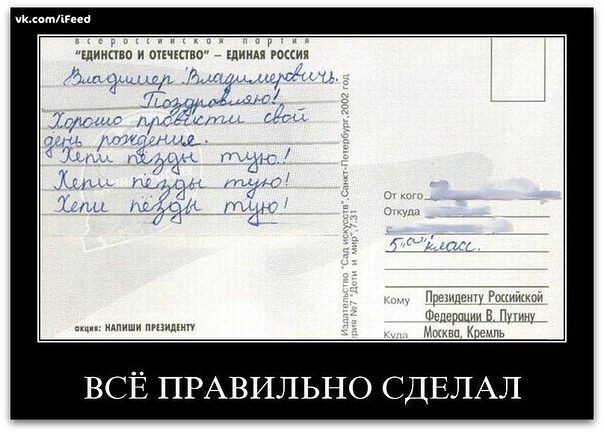 vk.com/iFeed
всероссийская партия
"ЕДИНСТВО И ОТЕЧЕСТВО" – ЕДИНАЯ РОССИЯ
Владимер Владимеровичь.
Поздровляю!
Хорошо провисти свой
день рождение.
Хепи пёзды тую!
Хепи пёзды тую!
Хепи пёзды тую!
акция: НАПИШИ ПРЕЗИДЕНТУ
Издательство "Сад искусств", Санкт-Петербург, 2002 год
рия №7 "Дети и мир", 7.31
От кого
Откуда
5 "а" класс.
Кому Президенту Российской
Федерации В. Путину
Куда Москва, Кремль
ВСЁ ПРАВИЛЬНО СДЕЛАЛ